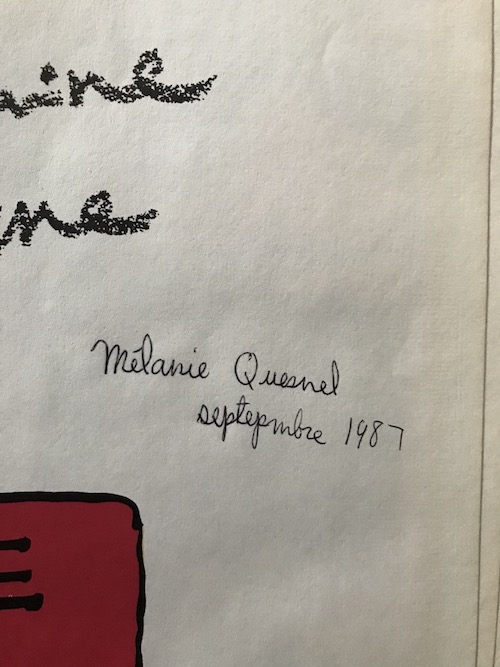 ine
ne
Mélanie Quesnel
septepmbre 1987